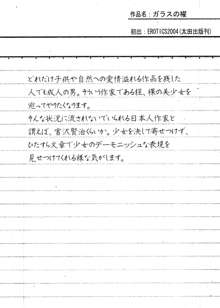 作品名：ガラスの櫂
初出：EROTICS2004（太田出版刊）
どれだけ子供や自然への愛情溢れる作品を残した
人でも成人の男。そういう作家である程、裸の美少女を
迎ってやりたくなります。
そんな状況に流されないでいられる日本人作家と
謂えば、宮沢賢治くらいか。少女を決して寄せつけず、
ひたすら文章で少女のデーモニッシュな表現を
見せつけてくれる様な気がします。